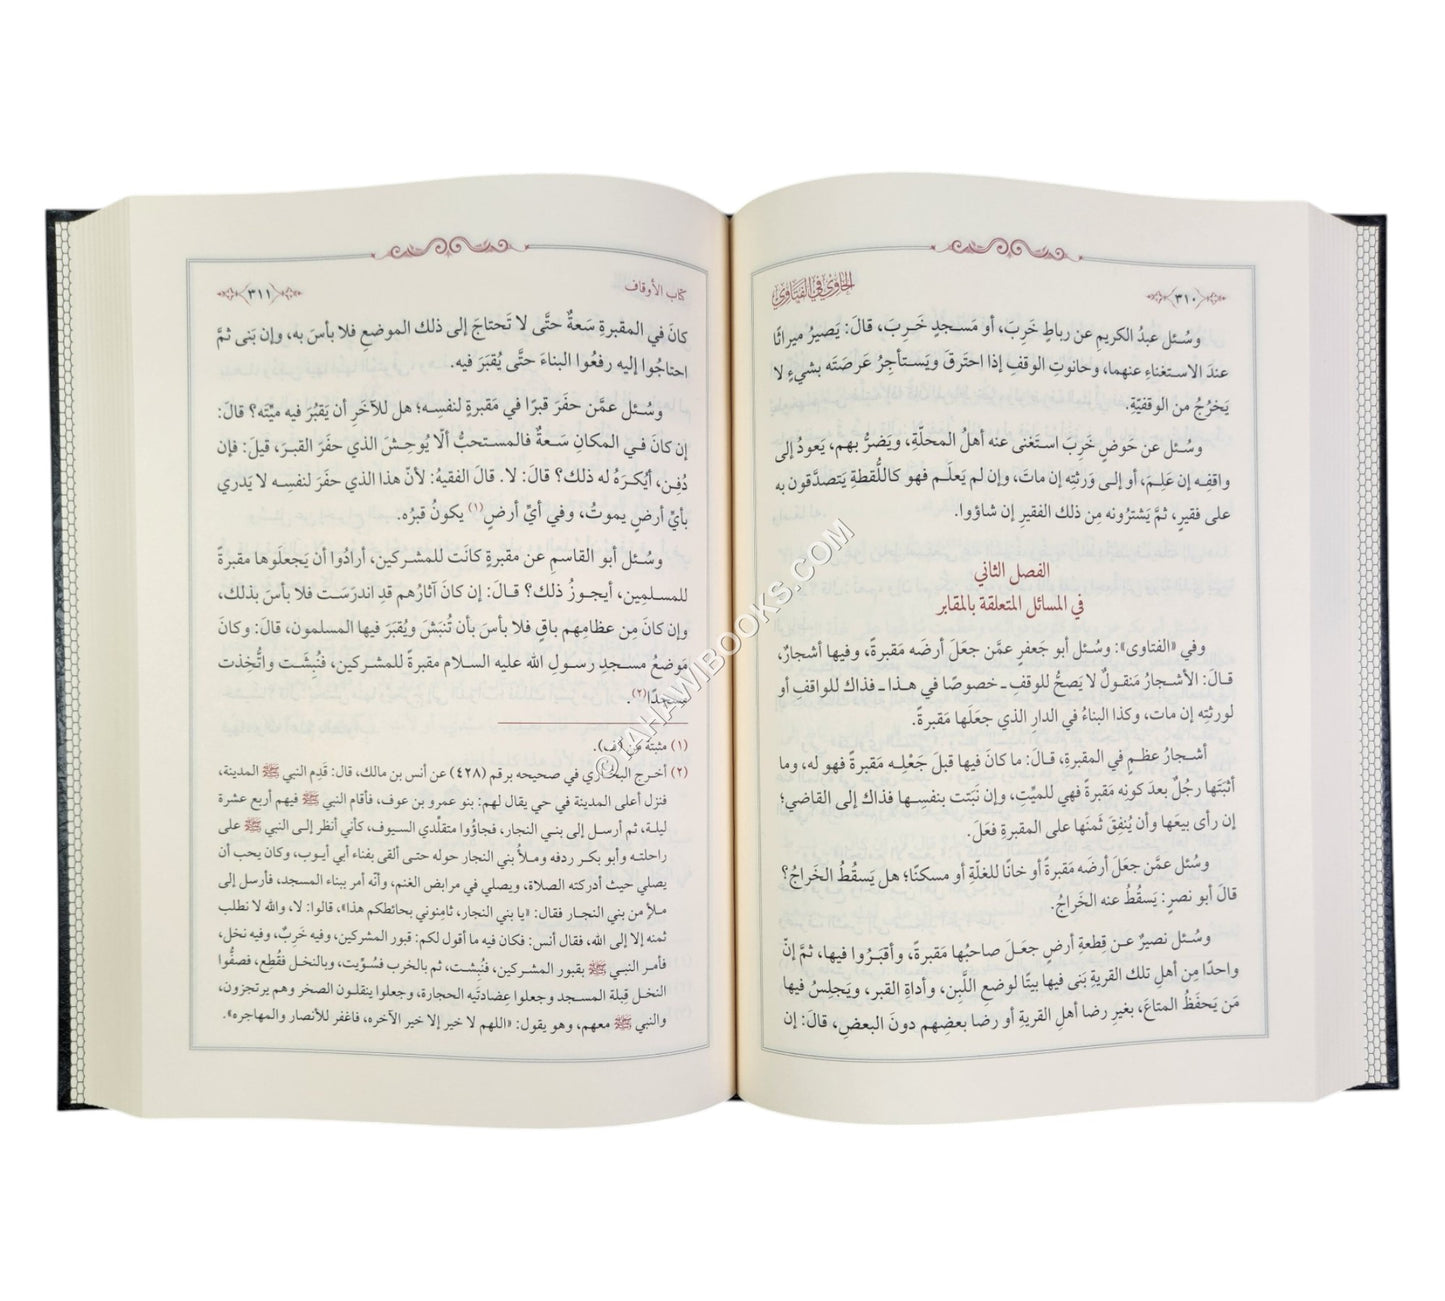 الحاوي في الفتاوى
٣١٠
وسُئل عبدُ الكريمِ عن رباطٍ خَرِبَ، أو مَسجدٍ خَرِبَ، قالَ: يَصيرُ ميراثًا
عندَ الاستغناءِ عنهما، وحانوتِ الوقفِ إذا احترقَ ويَستأجِرُ عَرصَتَه بشيءٍ لا
يَخرُجُ من الوقفيّةِ.
وسُئل عن حَوضٍ خَرِبَ استَغنى عنه أهلُ المحلّةِ، ويَضرُّ بهم، يَعودُ إلى
واقفِه إن عَلِمَ، أو إلى وَرثتِه إن ماتَ، وإن لم يَعلَم فهو كاللُّقطةِ يَتصدَّقون به
على فقيرٍ، ثمَّ يَشترُونه مِن ذلك الفقيرِ إن شاؤوا.
الفصل الثاني
في المسائل المتعلقة بالمقابر
وفي «الفتاوى»: وسُئل أبو جَعفرٍ عمَّن جعلَ أرضَه مَقبرةً، وفيها أشجارٌ،
قالَ: الأشجارُ مَنقولٌ لا يَصحُّ للوقفِ ـ خصوصًا في هذا ـ فذاك للواقفِ أو
لورثتِه إن مات، وكذا البناءُ في الدارِ الذي جعَلَها مَقبرةً.
أشجارُ عظمٍ في المقبرةِ، قالَ: ما كانَ فيها قبلَ جَعْلِه مَقبرةً فهو له، وما
أثبَتَها رجُلٌ بعدَ كونِه مَقبرةً فهي للميِّتِ، وإن نَبَتت بنفسِها فذاك إلى القاضي؛
إن رأى بيعَها وأن يُنفِقَ ثَمنَها على المقبرةِ فعَلَ.
وسُئل عمَّن جعَلَ أرضَه مَقبرةً أو خانًا للغلّةِ أو مسكنًا؛ هل يَسقُطُ الخَراجُ؟
قالَ أبو نصرٍ: يَسقُطُ عنه الخَراجُ.
وسُئل نصيرٌ عن قِطعةِ أرضٍ جعَلَ صاحبُها مَقبرةً، وأقبَرُوا فيها، ثمَّ إنّ
واحدًا مِن أهلِ تلك القريةِ بَنى فيها بيتًا لوضعِ اللَّبِنِ، وأداةِ القبرِ، ويَجلِسُ فيها
مَن يَحفَظُ المتاعَ، بغيرِ رضا أهلِ القريةِ أو رضا بعضِهم دونَ البعضِ، قالَ: إن
كتاب الأوقاف
٣١١
كانَ في المقبرةِ سَعةٌ حتَّى لا تَحتاجَ إلى ذلك الموضعِ فلا بأسَ به، وإن بَنى ثمَّ
احتاجُوا إليه رفعُوا البناءَ حتَّى يُقبَرَ فيه.
وسُئل عمَّن حفَرَ قبرًا في مَقبرةٍ لنفسِه؛ هل للآخَرِ أن يَقبُرَ فيه ميّتَه؟ قالَ:
إن كانَ في المكانِ سَعةٌ فالمستحبُّ ألّا يُوحِشَ الذي حفَرَ القبرَ، قيلَ: فإن
دُفِنَ، أيُكرَهُ له ذلك؟ قالَ: لا. قالَ الفقيهُ: لأنّ هذا الذي حفَرَ لنفسِه لا يَدري
بأيِّ أرضٍ يموتُ، وفي أيِّ أرضٍ(١) يكونُ قبرُه.
وسُئل أبو القاسمِ عن مقبرةٍ كانَت للمشركين، أرادُوا أن يَجعلَوها مقبرةً
للمسلمِين، أيجوزُ ذلك؟ قالَ: إن كانَ آثارُهم قدِ اندرَسَت فلا بأسَ بذلك،
وإن كانَ مِن عظامِهم باقٍ فلا بأسَ بأن تُنبَشَ ويُقبَرَ فيها المسلمون، قالَ: وكانَ
مَوضعُ مسجدِ رسولِ الله عليه السلام مقبرةً للمشركين، فنُبِشَت واتُّخِذت
مسجدًا(٢).
(١) مثبتة من (ف).
(٢) أخرج البخاري في صحيحه برقم (٤٢٨) عن أنس بن مالك، قال: قَدِم النبي ﷺ المدينة،
فنزل أعلى المدينة في حي يقال لهم: بنو عمرو بن عوف، فأقام النبي ﷺ فيهم أربع عشرة
ليلة، ثم أرسل إلى بني النجار، فجاؤوا متقلّدي السيوف، كأني أنظر إلى النبي ﷺ على
راحلته وأبو بكر ردفه وملأُ بني النجار حوله حتى ألقى بفناء أبي أيوب، وكان يحب أن
يصلي حيث أدركته الصلاة، ويصلي في مرابض الغنم، وأنّه أمر ببناء المسجد، فأرسل إلى
ملأ من بني النجار فقال: «يا بني النجار، ثامِنوني بحائطكم هذا»، قالوا: لا، والله لا نطلب
ثمنه إلا إلى الله، فقال أنس: فكان فيه ما أقول لكم: قبور المشركين، وفيه خَرِبٌ، وفيه نخل،
فأمر النبي ﷺ بقبور المشركين، فنُبِشت، ثم بالخرب فسُوِّيت، وبالنخل فقُطِع، فصفُّوا
النخل قِبلة المسجد وجعلوا عضادتَيه الحجارة، وجعلوا ينقلون الصخر وهم يرتجزون،
والنبي ﷺ معهم، وهو يقول: «اللهم لا خير إلا خير الآخره، فاغفر للأنصار والمهاجره».
© TAHAWIBOOKS.COM